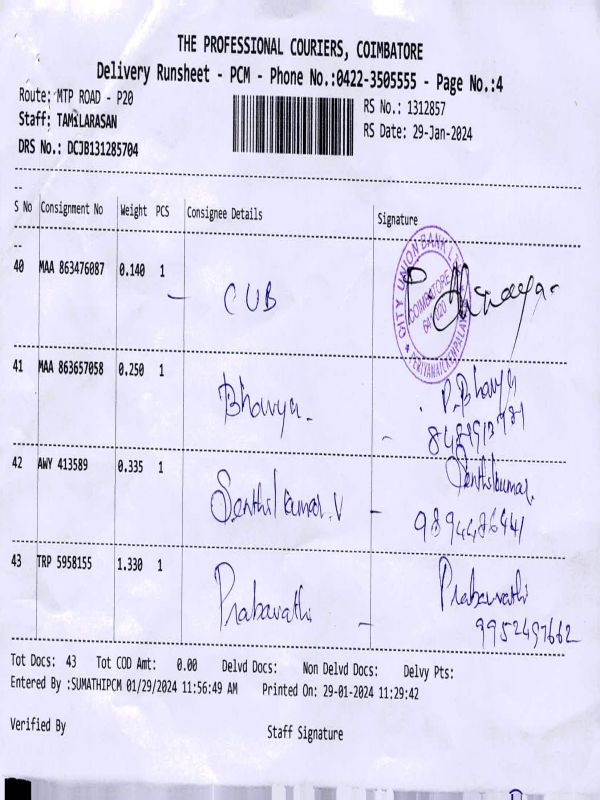 THE PROFESSIONAL COURIERS, COIMBATORE
Delivery Runsheet - PCM - Phone No.:0422-3505555 - Page No.:4
Route: MTP ROAD - P20
RS No.: 1312857
Staff: TAMILARASAN
RS Date: 29-Jan-2024
DRS No.: DCJB131285704
S No Consignment No Weight PCS Consignee Details Signature
40 MAA 863476087 0.140 1 CUB
CITY UNION BANK
COIMBATORE
641020
PERIYANAICKENPALAYAM
41 MAA 863657058 0.250 1 Bhavya. P. Bhavya
42 AWY 413589 0.335 1 Senthil kumar. V Senthilkumar.
9894486441
43 TRP 5958155 1.330 1 Prabavathi Prabavathi
9952497662
Tot Docs: 43 Tot COD Amt: 0.00 Delvd Docs: Non Delvd Docs: Delvy Pts:
Entered By :SUMATHIPCM 01/29/2024 11:56:49 AM Printed On: 29-01-2024 11:29:42
Verified By
Staff Signature